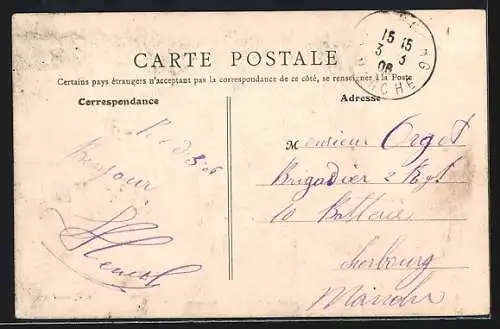 CARTE POSTALE
Certains pays étrangers n'acceptant pas la correspondance de ce côté, se renseigner à la Poste
Correspondance
Adresse
15 15
3 3
08
Bonjour
Monsieur Orgot
Brigadier 2 Rgt
10 Batterie
Cherbourg
Manche